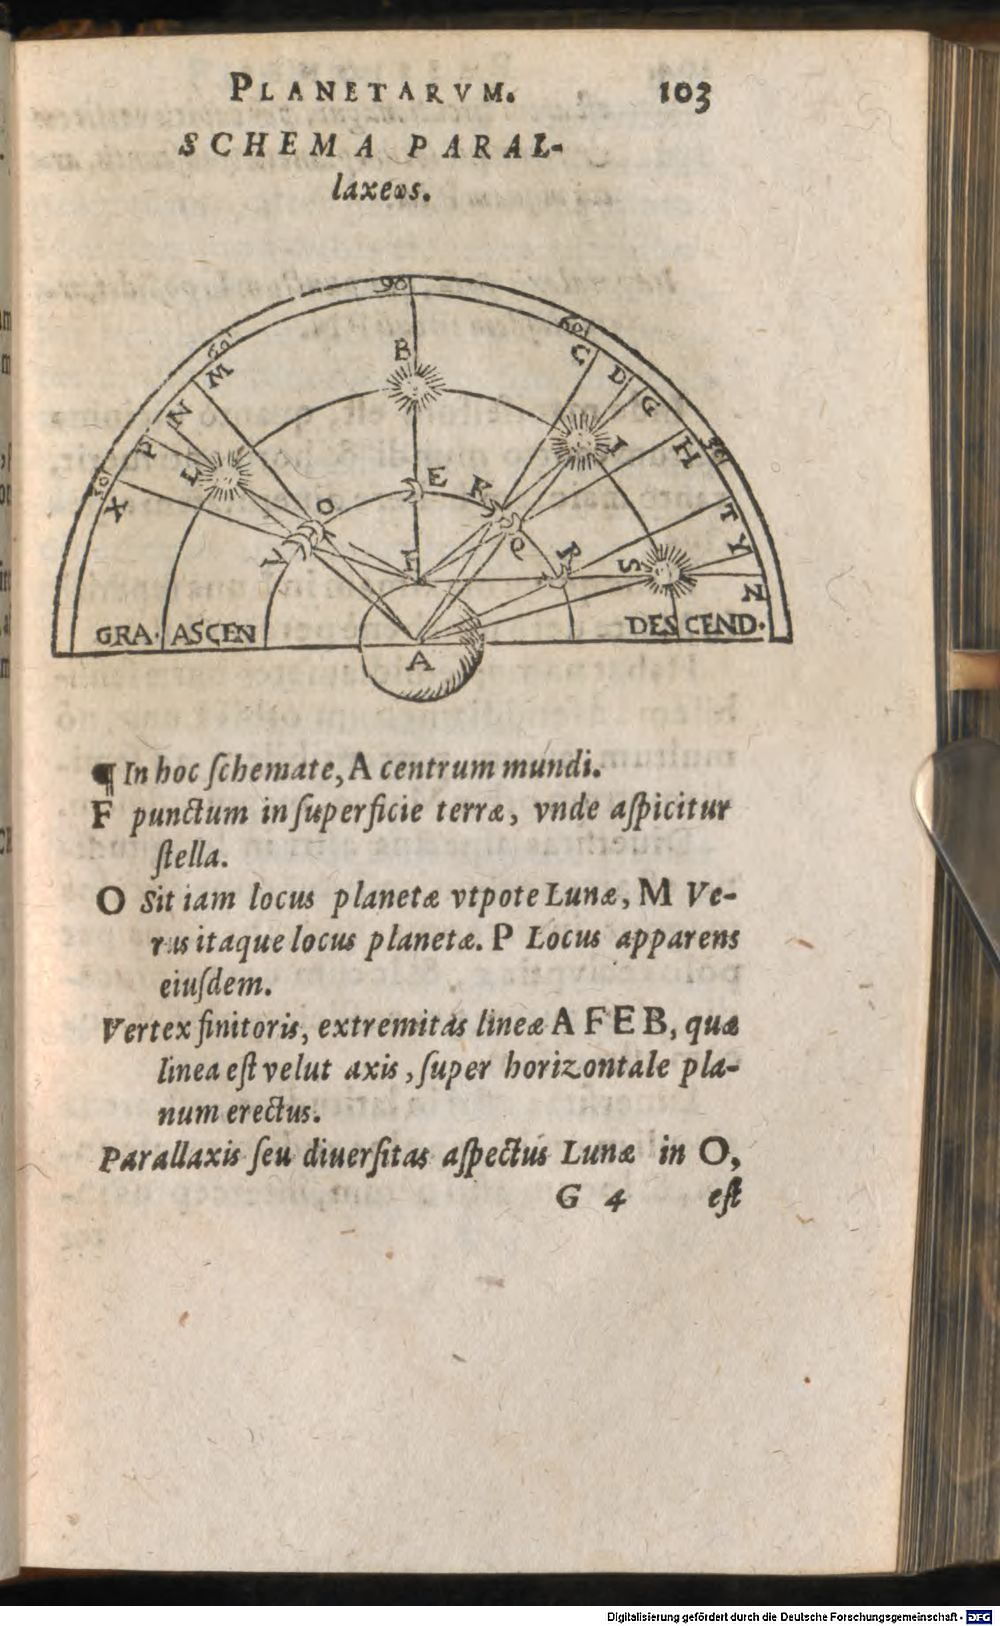 PLANETARVM. 103
SCHEMA PARAL-
laxeωs.
90
60
60
30
30
B
C
D
G
M
N
P
X
L
I
H
O
E
K
V
F
Q
R
S
T
Y
Z
GRA. ASCEN
DESCEND.
A
¶ In hoc ſchemate, A centrum mundi.
F punctum in ſuperficie terræ, vnde aſpicitur
ſtella.
O Sit iam locus planetæ vtpote Lunæ, M Ve-
rus itaque locus planetæ. P Locus apparens
eiuſdem.
Vertex finitoris, extremitas lineæ A F E B, quæ
linea eſt velut axis, ſuper horizontale pla-
num erectus.
Parallaxis ſeu diuerſitas aſpectus Lunæ in O,
G 4 eſt
Digitalisierung gefördert durch die Deutsche Forschungsgemeinschaft - DFG